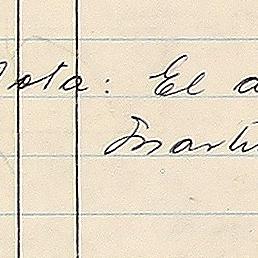 Nota: El a
Marti